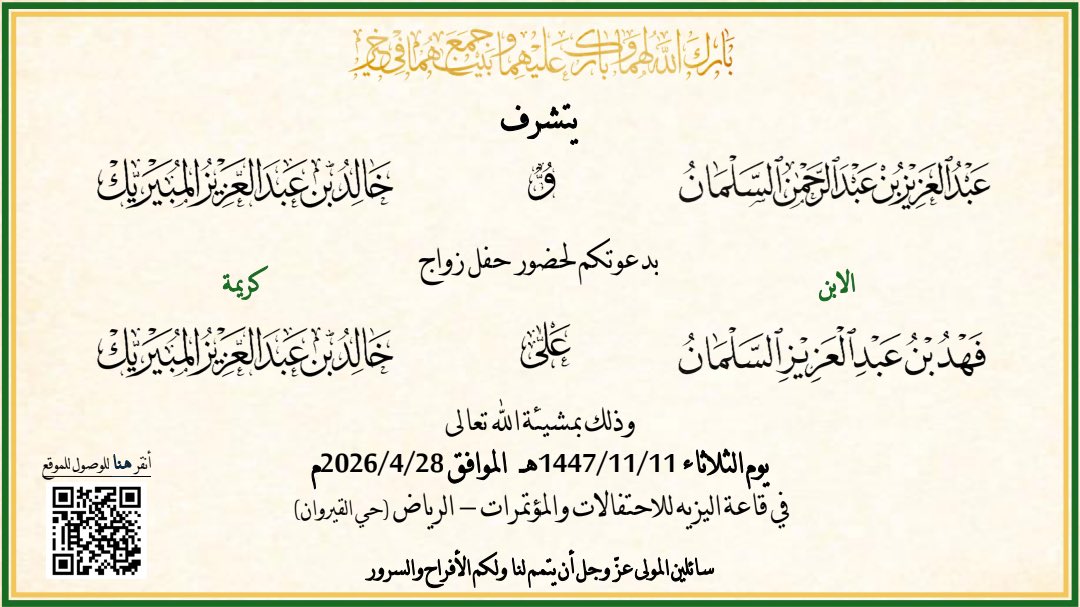 بارك الله لهما وبارك عليهما وجمع بينهما في خير
يتشرف
عَبْدُ الْعَزِيْزِ بْنُ عَبْدَ الرَّحْمٰنِ السَّلْمَانُ وَ خَالِدُ بْنُ عَبْدَ الْعَزِيْزُ الْمُبَيْرِيْكَ
بدعوتكم لحضور حفل زواج
الابن كريمة
فَهْدُ بْنُ عَبْدِ الْعَزِيْزِ السَّلْمَانُ عَلَىٰ خَالِدُ بْنُ عَبْدَ الْعَزِيْزُ الْمُبَيْرِيْكَ
وذلك بمشيئة الله تعالى
يوم الثلاثاء 1447/11/11هـ الموافق 2026/4/28م
في قاعة اليزيه للاحتفالات والمؤتمرات – الرياض (حي القيروان)
أنقر هنا للوصول للموقع
سائلين المولى عزّ وجل أن يتمم لنا ولكم الأفراح والسرور